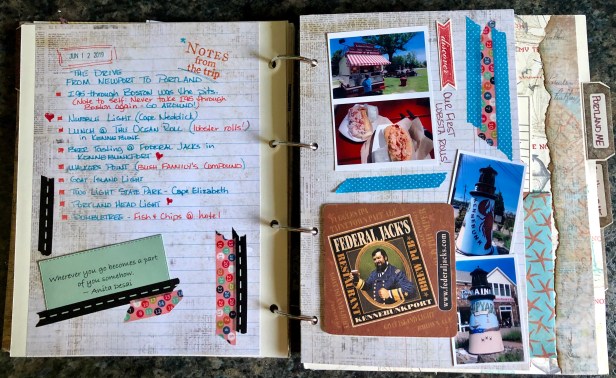 JUN 12 2015
NOTES
from
the trip
THE DRIVE
FROM NEWPORT TO PORTLAND
I95 through BOSTON WAS the pits.
(Note to Self: Never take I95 through
Boston again - GO AROUND!)
Nubble Light (Cape Neddick)
Lunch @ The Ocean Roll (lobster rolls!)
in KENNEBUNK
Beer Tasting @ Federal Jacks in
KENNEBUNKPORT
Walkers Point (Bush Family's Compound)
Goat Island Light
Two Light State Park - Cape Elizabeth
Portland Head Light
- Fish & Chips @ hotel
Wherever you go becomes a part
of you somehow.
~ Anita Desai
discover
OUR FIRST
LOBSTA ROLLS!
FEDERAL JACK'S
RESTAURANT
BREW PUB
KENNEBUNKPORT
www.federaljacks.com
PORTLAND, ME